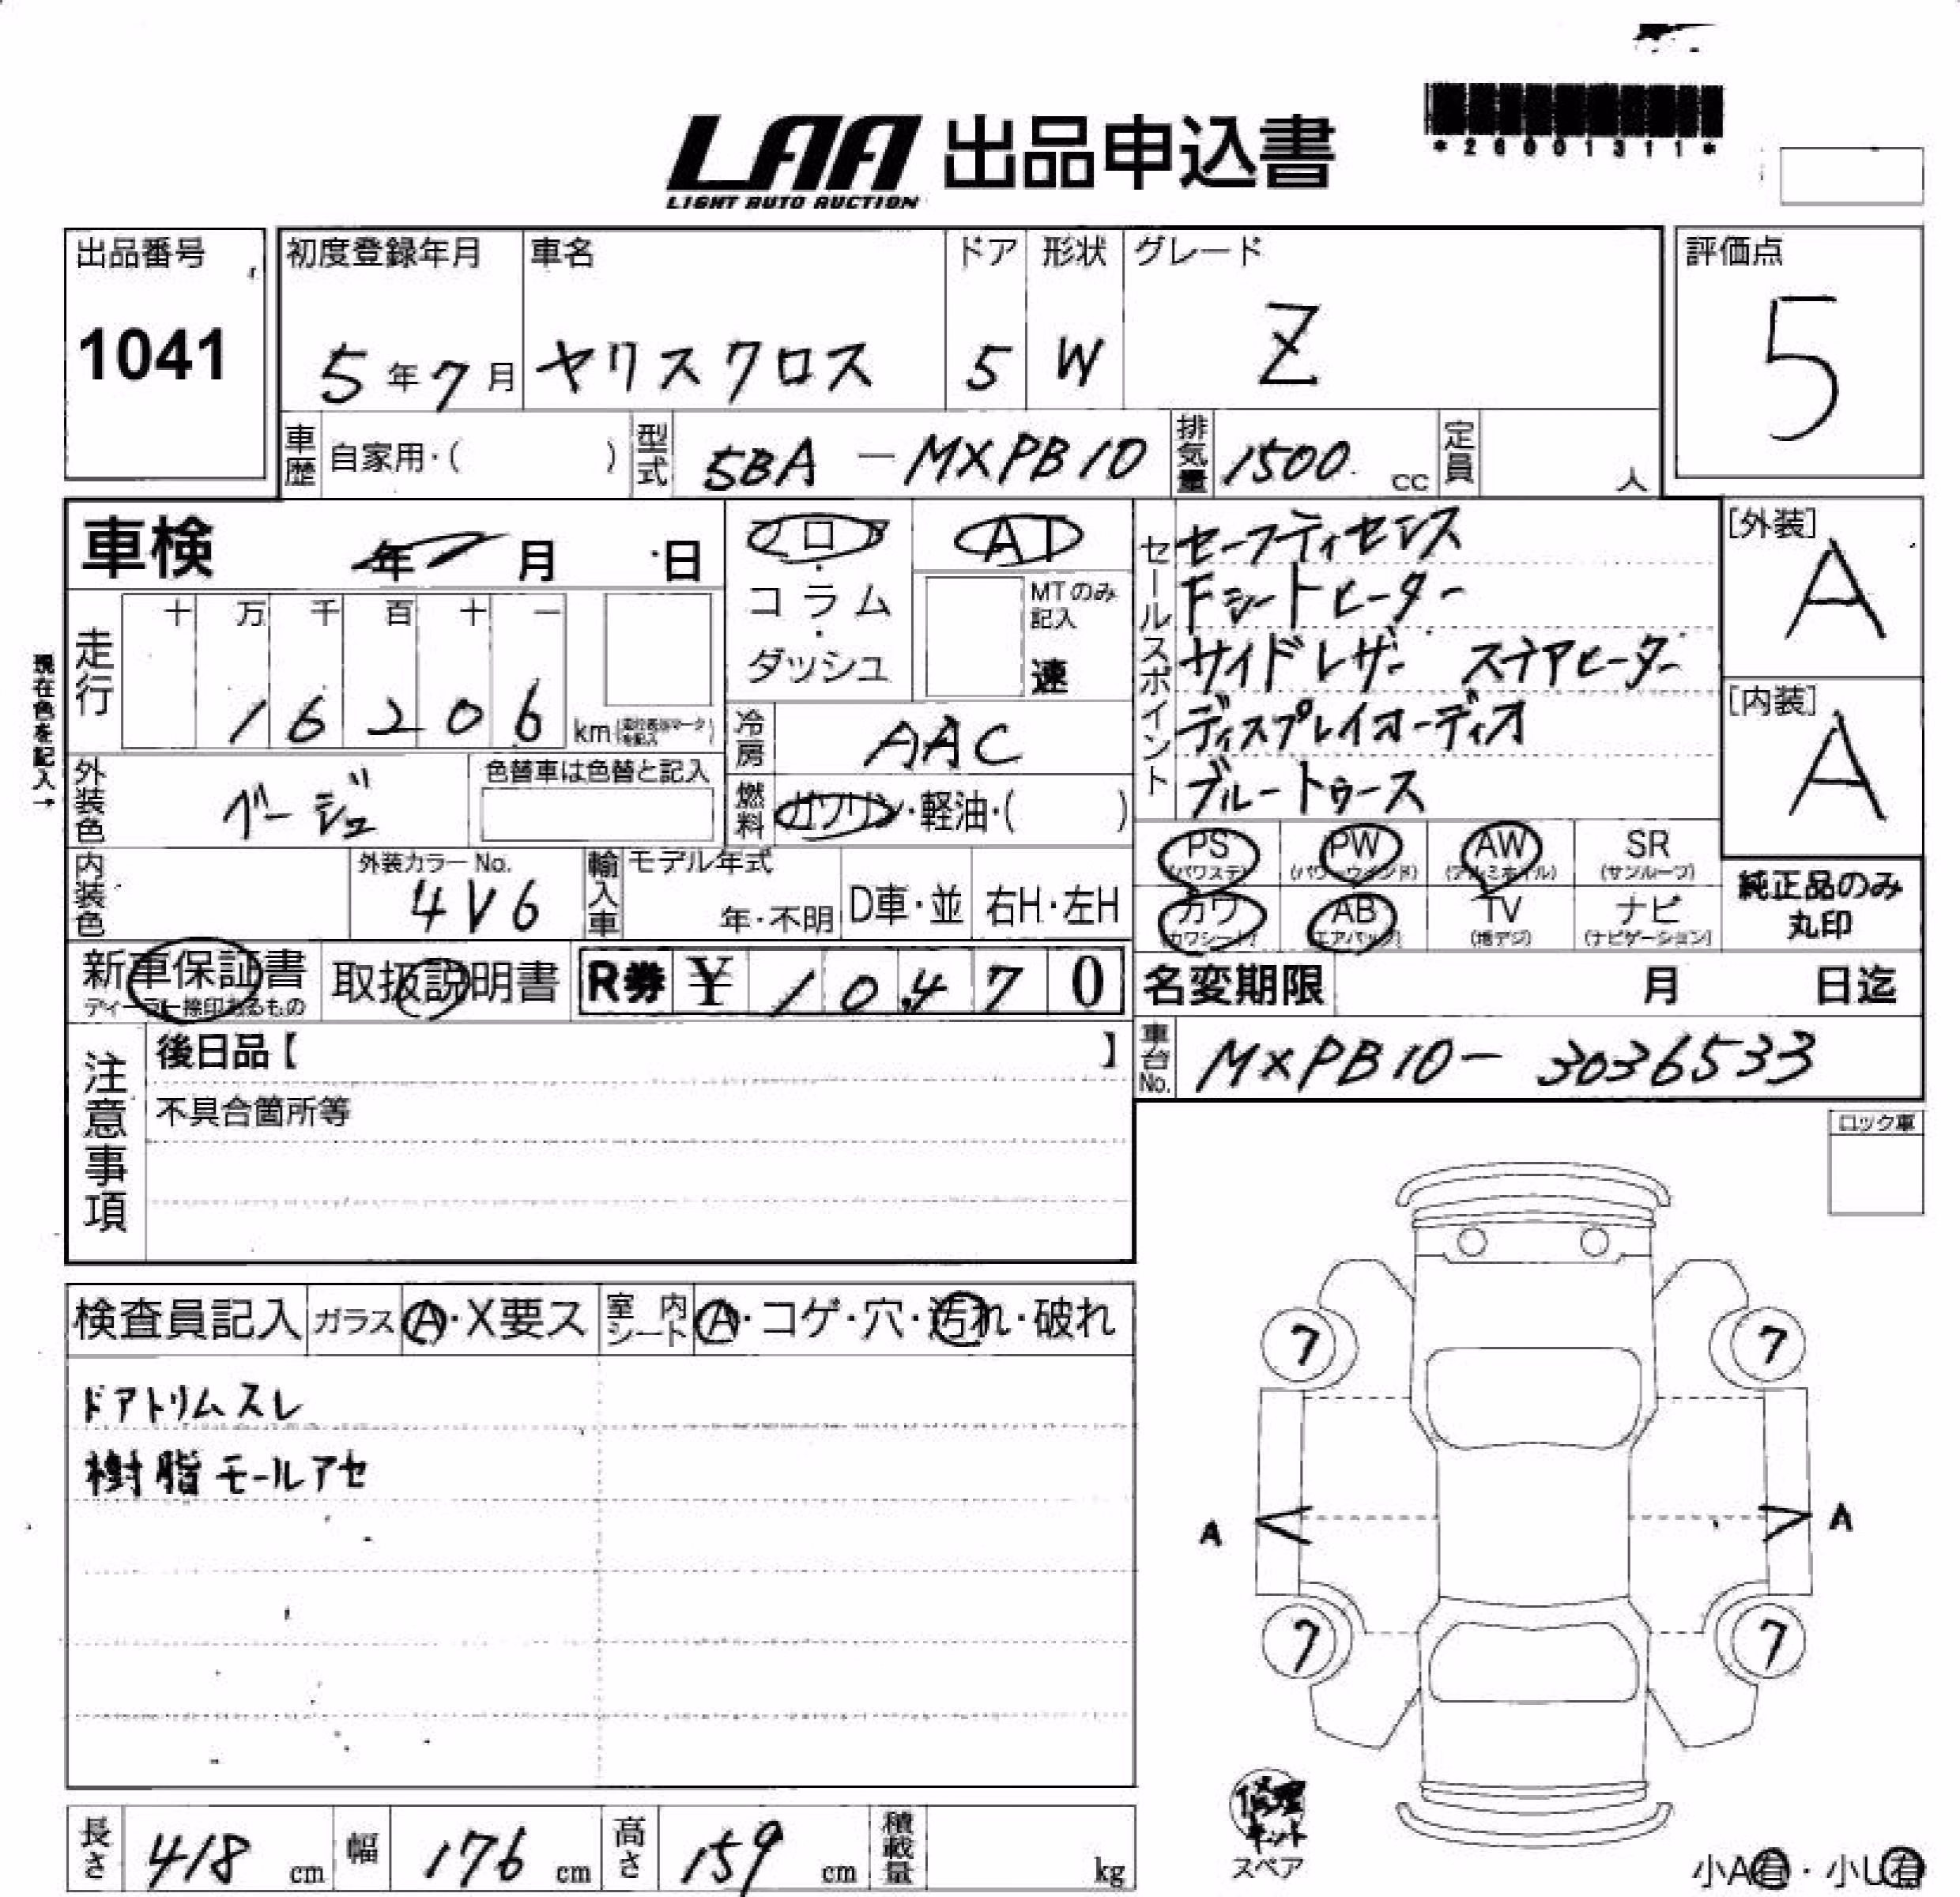 LAA 出品申込書
LIGHT AUTO AUCTION
*26001311*
出品番号
1041
初度登録年月 車名 ドア 形状 グレード
5年7月 ヤリスクロス 5 W Z
評価点
5
車歴 自家用・( ) 型式 5BA-MXPB10 排気量 1500 cc 定員 人
車検 年 月 日
フロア
コラム
・
ダッシュ
AT
MTのみ記入
速
現在色を記入→
走行 十 万 千 百 十 一
16206 km
冷房 AAC
外装色 ベージュ 色替車は色替と記入
燃料 ガソリン・軽油・( )
内装色
外装カラーNo.
4V6
輸入車 モデル年式
年・不明 D車・並 右H・左H
セールスポイント
セーフティセンス
Fシートヒーター
サイドレザー ステアヒーター
ディスプレイオーディオ
ブルートゥース
[外装]
A
[内装]
A
PS PW AW SR
(パワステ) (パワーウインド) (アルミホイル) (サンルーフ)
カワ AB TV ナビ
(カワシート) (エアバッグ) (地デジ) (ナビゲーション)
純正品のみ
丸印
新車保証書
ディーラー捺印あるもの
取扱説明書
R券 ¥ 10,470
名変期限 月 日迄
車台No. MXPB10-3036533
注意事項
後日品【 】
不具合箇所等
ロック車
検査員記入 ガラス A・X要ス 室内シート A・コゲ・穴・汚れ・破れ
ドアトリムスレ
樹脂モールアセ
7 7
A A
7 7
修理
キット
スペア
小A有・小U有
長さ 418 cm 幅 176 cm 高さ 159 cm 積載量 kg